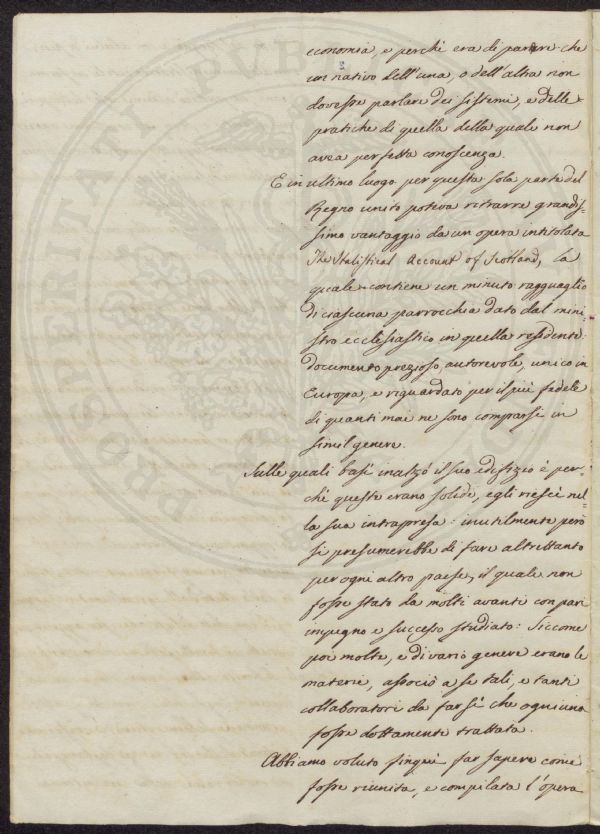 economia, e perchè era di parere che
un nativo dell'una, o dell'altra non
dovesse parlare dei sistemi, e delle
pratiche di quella della quale non
avea perfetta conoscenza.
E in ultimo luogo per questa sola parte del
Regno unito poteva ritrarre grandis=
simo vantaggio da un opera intitolata
The Statistical Account of Scotland, la
quale contiene un minuto ragguaglio
di ciascuna parrocchia dato dal mini=
stro ecclesiastico in quella residente:
documento prezioso, autorevole, unico in
Europa, e riguardato per il più fedele
di quanti mai ne sono comparsi in
simil genere.
Sulle quali basi inalzò il suo edifizio e per=
chè queste erano solide, egli riescì nel=
la sua intrapresa: inutilmente però
si presumerebbe di fare altrettanto
per ogni altro paese, il quale non
fosse stato da molti avanti con pari
impegno e successo studiato: Siccome
poi molte, e di vario genere erano le
materie, associò a se tali, e tanti
collaboratori da far sì che ogniuna
fosse dottamente trattata.
Abbiamo voluto finquì far sapere come
fosse riunita, e compilata l'opera
PROSPERITATI PVBLI